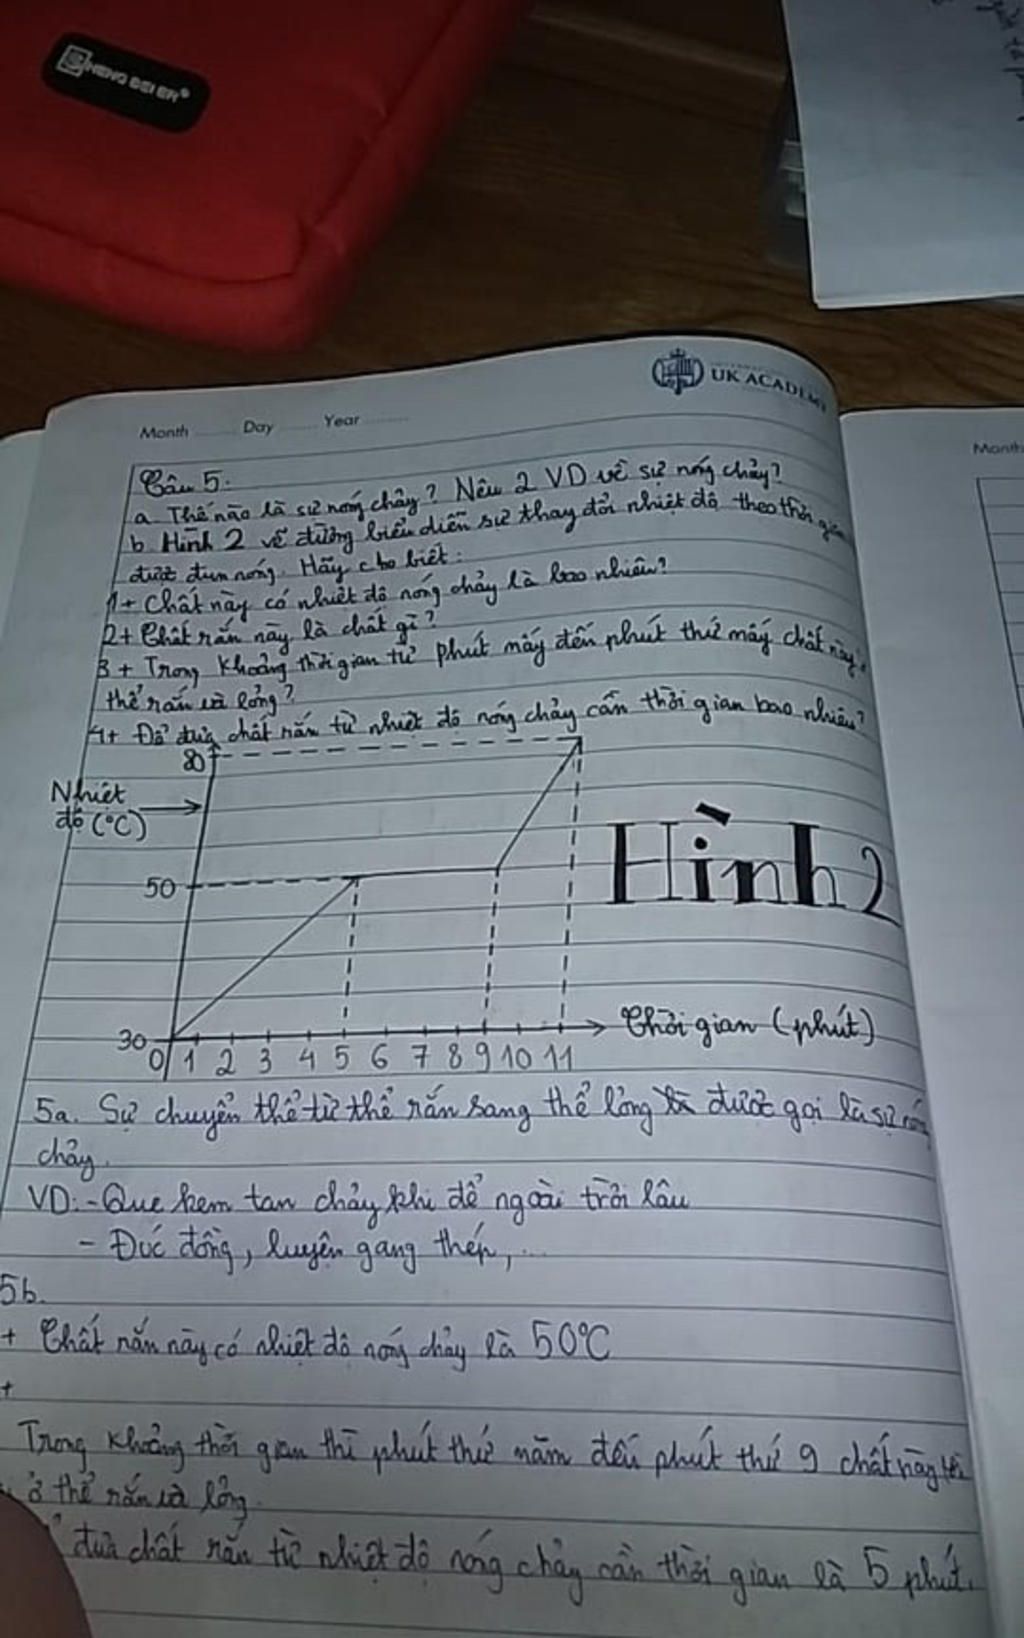 SHENG BEI ER®
UK ACADEMY
Month ........ Day ........ Year ........
Month
Câu 5:
a. Thế nào là sự nóng chảy? Nêu 2 VD về sự nóng chảy?
b. Hình 2 vẽ đường biểu diễn sự thay đổi nhiệt độ theo thời gian
được đun nóng. Hãy cho biết:
1+ Chất này có nhiệt độ nóng chảy là bao nhiêu?
2+ Chất rắn này là chất gì?
3+ Trong khoảng thời gian từ phút mấy đến phút thứ mấy chất này
thể rắn và lỏng?
4+ Để đưa chất rắn từ nhiệt độ nóng chảy cần thời gian bao nhiêu?
80
Nhiệt
độ (°C)
Hình 2
50
Thời gian (phút)
30
0 1 2 3 4 5 6 7 8 9 10 11
5a. Sự chuyển thể từ thể rắn sang thể lỏng được gọi là sự nóng
chảy.
VD: - Que kem tan chảy khi để ngoài trời lâu
- Đúc đồng, luyện gang thép, ...
5b.
+ Chất rắn này có nhiệt độ nóng chảy là 50°C
+
Trong khoảng thời gian thì phút thứ năm đến phút thứ 9 chất này
ở thể rắn và lỏng.
đưa chất rắn từ nhiệt độ nóng chảy cần thời gian là 5 phút.